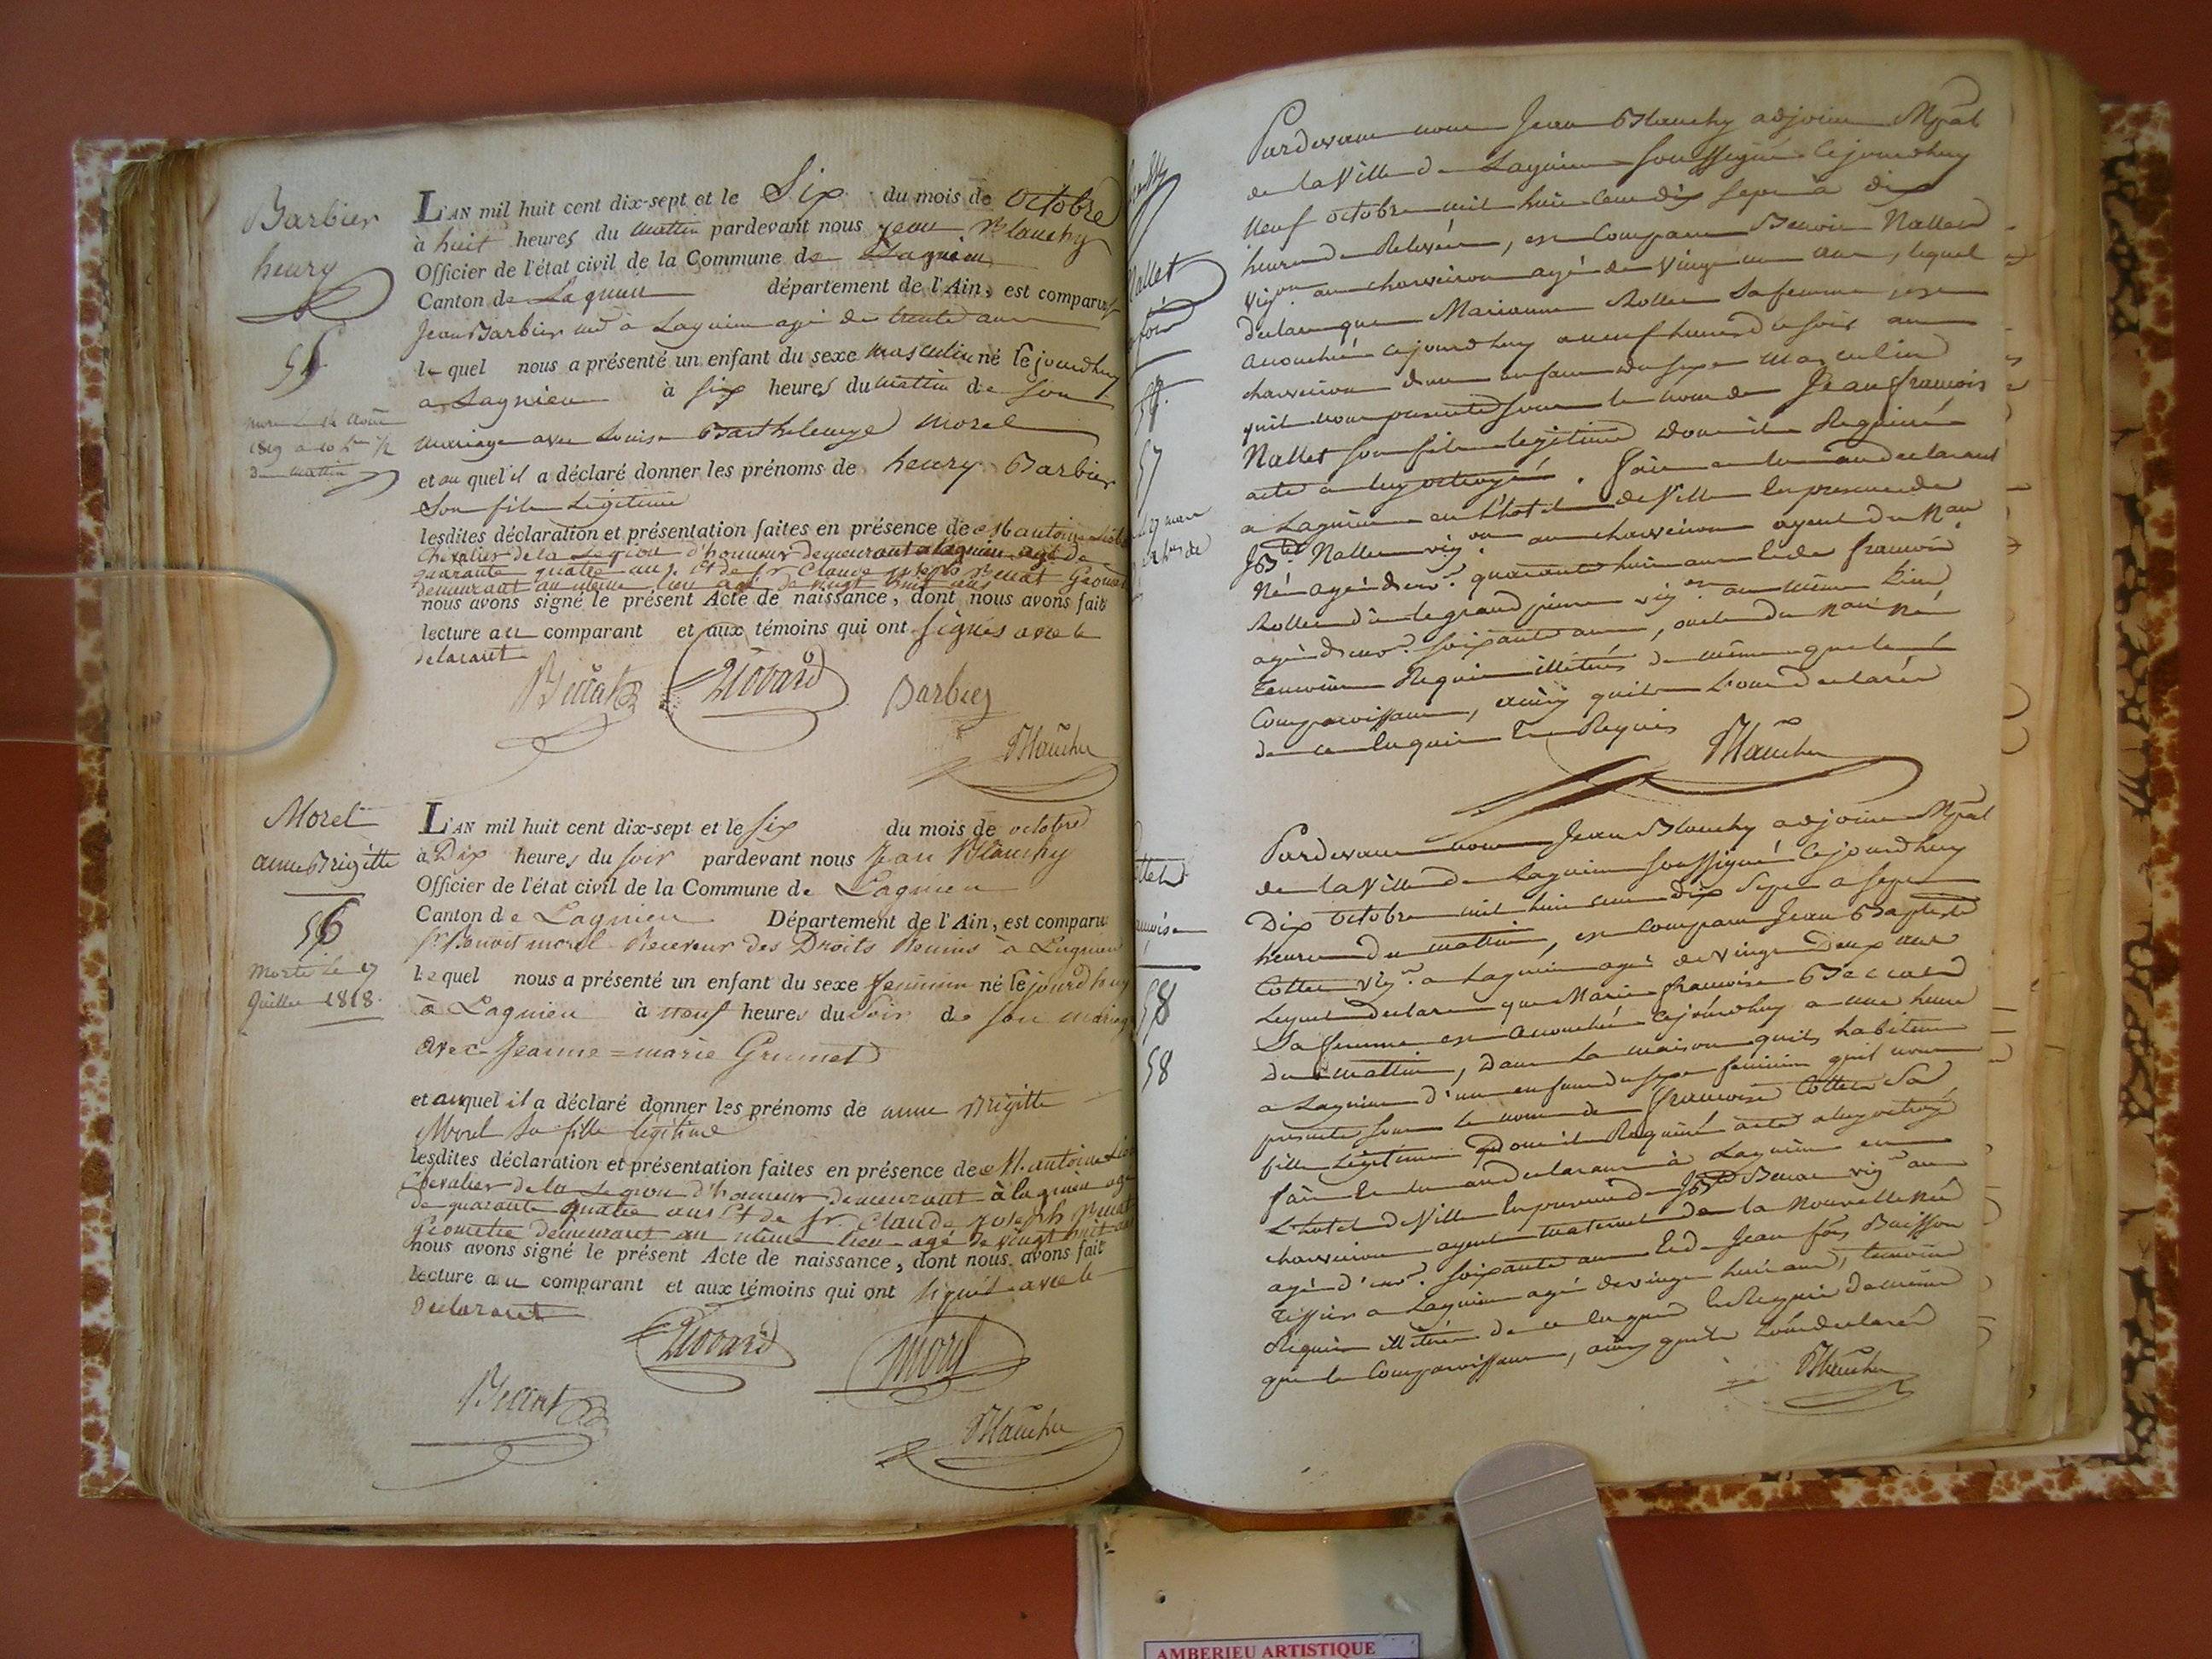 Barbier
henry
55
morte le 14 Août
1819 a 10 h.res 1/2
du mattin
L'AN mil huit cent dix-sept et le Six du mois de Octobre
à huit heures du mattin pardevant nous jean Blanchy
Officier de l'état civil de la Commune de Lagnieu
Canton de Lagnieu département de l'Ain, est comparu
Jean Barbier né à Lagnieu agé de trente ans
le quel nous a présenté un enfant du sexe masculin né le jourdhuy
a Lagnieu à six heures du mattin de son
mariage avec Louise Barthelemye Morel
et au quel il a déclaré donner les prénoms de henry Barbier
Son fils Légitime
lesdites déclaration et présentation faites en présence de M antoine
Chevalier de la Legion d'honneur demeurant a lagnieu agé de
quarante quatre ans Et de sr Claude joseph Benat Geometre
demeurant au même lieu agé de vingt huit ans
nous avons signé le présent Acte de naissance, dont nous avons fait
lecture au comparant et aux témoins qui ont signés avec le
delarant
Barbier
Blanchy
Morel
anne Brigitte
56
Morte le 17
Juillet 1818.
L'AN mil huit cent dix-sept et le six du mois de octobre
à Dix heures du soir pardevant nous Jean Blanchy
Officier de l'état civil de la Commune de Lagnieu
Canton de Lagnieu Département de l'Ain, est comparu
sr Benoit morel Receveur des Droits Reunis à Lagnieu
le quel nous a présenté un enfant du sexe feminin né le jourdhuy
à Lagnieu à neuf heures du soir de son mariage
avec Jeanne=marie Grumet
et auquel il a déclaré donner les prénoms de anne Brigitte
Morel sa fille légitime
lesdites déclaration et présentation faites en présence de M. antoine
Chevalier de la Legion d'honneur demeurant à lagnieu agé
de quarante quatre ans Et de sr. Claude Joseph Benat
Geometre demeurant au même lieu agé de vingt huit ans
nous avons signé le présent Acte de naissance, dont nous avons fait
lecture au comparant et aux témoins qui ont signés avec le
declarant
Morel
Blanchy
Nallet
57
58
58
Pardevant nous Jean Blanchy adjoint Mpal
de la Ville de Lagnieu soussigné Cejourdhuy
Neuf octobre mil huit Cent dix sept à dix
heures de Relevée, est Comparu Benoit Nallet
vigon au charveiron agé de vingt un ans, lequel
declare que Marianne Rollet Sa femme est
accouchée cejourdhuy a neuf heures du soir au
charveiron d'un enfant du sexe masculin
quil nous presente sous le nom de Jean françois
Nallet son fils legitime dont il a Requis
acte a luy octroyé. fait et lu au declarant
a Lagnieu en l'hotel de Ville En presence de
JBte Nallet vigon au charveiron ayeul du Nau
Né agé d'env. quarante huit ans Et de françois
Rollet dit le grand jeune vigon au même Lieu
agé d'env. soixante ans, oncle du Nau Né
temoins Requis illitérés de même que le
Comparoissant, ainsy quils L'ont declaré
de ce Enquis Et Requis
Blanchy
Pardevant nous Jean Blanchy adjoint Mpal
de la Ville de Lagnieu soussigné Cejourdhuy
Dix octobre mil huit cent dix Sept a sept
heures du mattin, est Comparu Jean Baptiste
Cottet vign. a Lagnieu agé de vingt Deux ans
Lequel declare que Marie françoise Beccat
Sa femme est accouchée cejourdhuy a une heure
du mattin, dans La maison quils habitent
a Lagnieu d'un enfant du sexe feminin quil nous
presente sous Le nom de françoise Cottet Sa
fille Legitime dont il a Requis acte a luy octroyé
fait Et lu au declarant à Lagnieu en
L'hotel de Ville En presence de JBte Beccat vign au
charveiron ayeul maternel de la Nouvelle Née
agé d'env. soixante ans Et de Jean fois Buisson
Tissier a Lagnieu agé de vingt huit ans, temoins
Requis illitérés de ce Enquis Et Requis de même
que le Comparoissant, ainsy quils L'ont declaré
Blanchy
AMBERIEU ARTISTIQUE